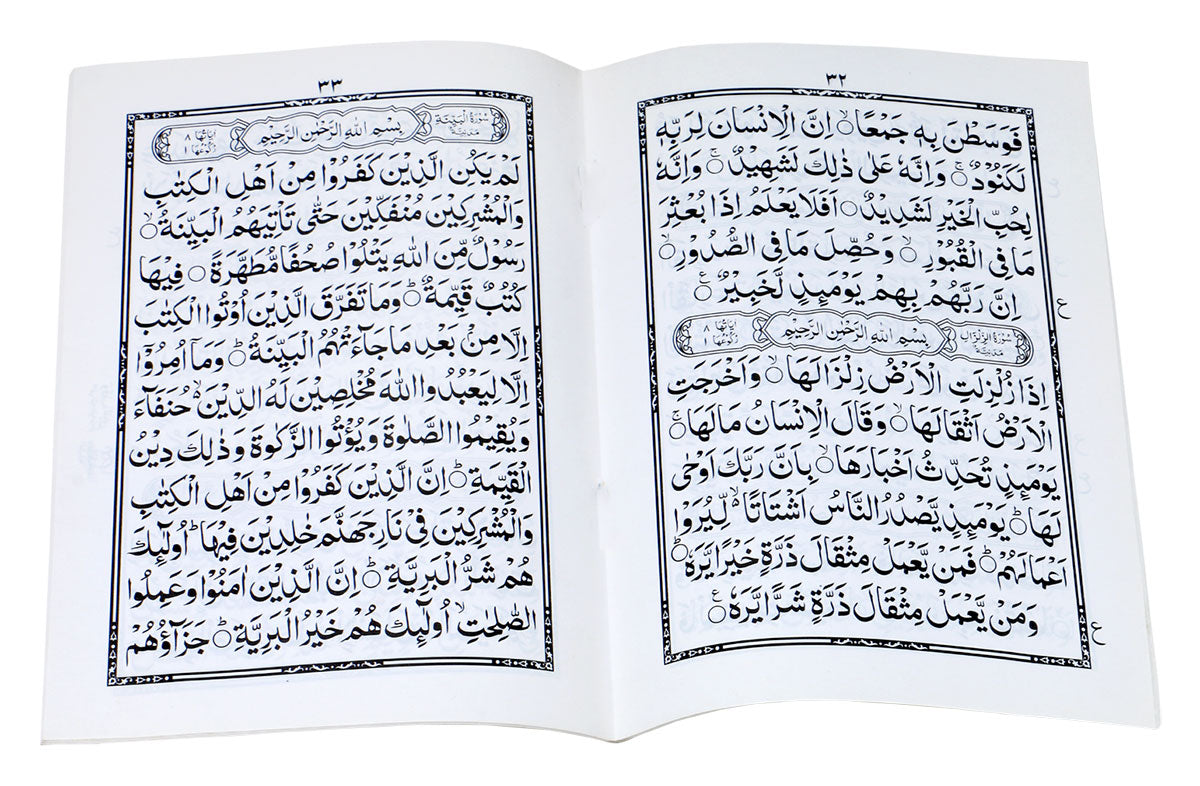 ٣٢
فَوَسَطْنَ بِهٖ جَمْعًا ۙ اِنَّ الْاِنْسَانَ لِرَبِّهٖ
لَكَنُوْدٌ ۚ وَاِنَّهٗ عَلٰى ذٰلِكَ لَشَهِيْدٌ ۚ وَاِنَّهٗ
لِحُبِّ الْخَيْرِ لَشَدِيْدٌ ؕ اَفَلَا يَعْلَمُ اِذَا بُعْثِرَ
مَا فِى الْقُبُوْرِ ۙ وَحُصِّلَ مَا فِى الصُّدُوْرِ ۙ
اِنَّ رَبَّهُمْ بِهِمْ يَوْمَئِذٍ لَّخَبِيْرٌ ۠ ع
سُوْرَةُ الزِّلْزَالِ مَدَنِيَّةٌ بِسْمِ اللهِ الرَّحْمٰنِ الرَّحِيْمِ اٰيَاتُهَا ٨ رُكُوْعُهَا ١
اِذَا زُلْزِلَتِ الْاَرْضُ زِلْزَالَهَا ۙ وَاَخْرَجَتِ
الْاَرْضُ اَثْقَالَهَا ۙ وَقَالَ الْاِنْسَانُ مَا لَهَا ۚ
يَوْمَئِذٍ تُحَدِّثُ اَخْبَارَهَا ۙ بِاَنَّ رَبَّكَ اَوْحٰى
لَهَا ؕ يَوْمَئِذٍ يَّصْدُرُ النَّاسُ اَشْتَاتًا ۙ لِّيُرَوْا
اَعْمَالَهُمْ ؕ فَمَنْ يَّعْمَلْ مِثْقَالَ ذَرَّةٍ خَيْرًا يَّرَهٗ ؕ
وَمَنْ يَّعْمَلْ مِثْقَالَ ذَرَّةٍ شَرًّا يَّرَهٗ ۠ ع
٣٣
سُوْرَةُ الْبَيِّنَةِ مَدَنِيَّةٌ بِسْمِ اللهِ الرَّحْمٰنِ الرَّحِيْمِ اٰيَاتُهَا ٨ رُكُوْعُهَا ١
لَمْ يَكُنِ الَّذِيْنَ كَفَرُوْا مِنْ اَهْلِ الْكِتٰبِ
وَالْمُشْرِكِيْنَ مُنْفَكِّيْنَ حَتّٰى تَاْتِيَهُمُ الْبَيِّنَةُ ۙ
رَسُوْلٌ مِّنَ اللهِ يَتْلُوْا صُحُفًا مُّطَهَّرَةً ۝ فِيْهَا
كُتُبٌ قَيِّمَةٌ ؕ وَمَا تَفَرَّقَ الَّذِيْنَ اُوْتُوا الْكِتٰبَ
اِلَّا مِنْۢ بَعْدِ مَا جَآءَتْهُمُ الْبَيِّنَةُ ؕ وَمَاۤ اُمِرُوْۤا
اِلَّا لِيَعْبُدُوا اللهَ مُخْلِصِيْنَ لَهُ الدِّيْنَ ۙ حُنَفَآءَ
وَيُقِيْمُوا الصَّلٰوةَ وَيُؤْتُوا الزَّكٰوةَ وَذٰلِكَ دِيْنُ
الْقَيِّمَةِ ؕ اِنَّ الَّذِيْنَ كَفَرُوْا مِنْ اَهْلِ الْكِتٰبِ
وَالْمُشْرِكِيْنَ فِىْ نَارِ جَهَنَّمَ خٰلِدِيْنَ فِيْهَا ؕ اُولٰٓئِكَ
هُمْ شَرُّ الْبَرِيَّةِ ؕ اِنَّ الَّذِيْنَ اٰمَنُوْا وَعَمِلُوا
الصّٰلِحٰتِ ۙ اُولٰٓئِكَ هُمْ خَيْرُ الْبَرِيَّةِ ؕ جَزَآؤُهُمْ